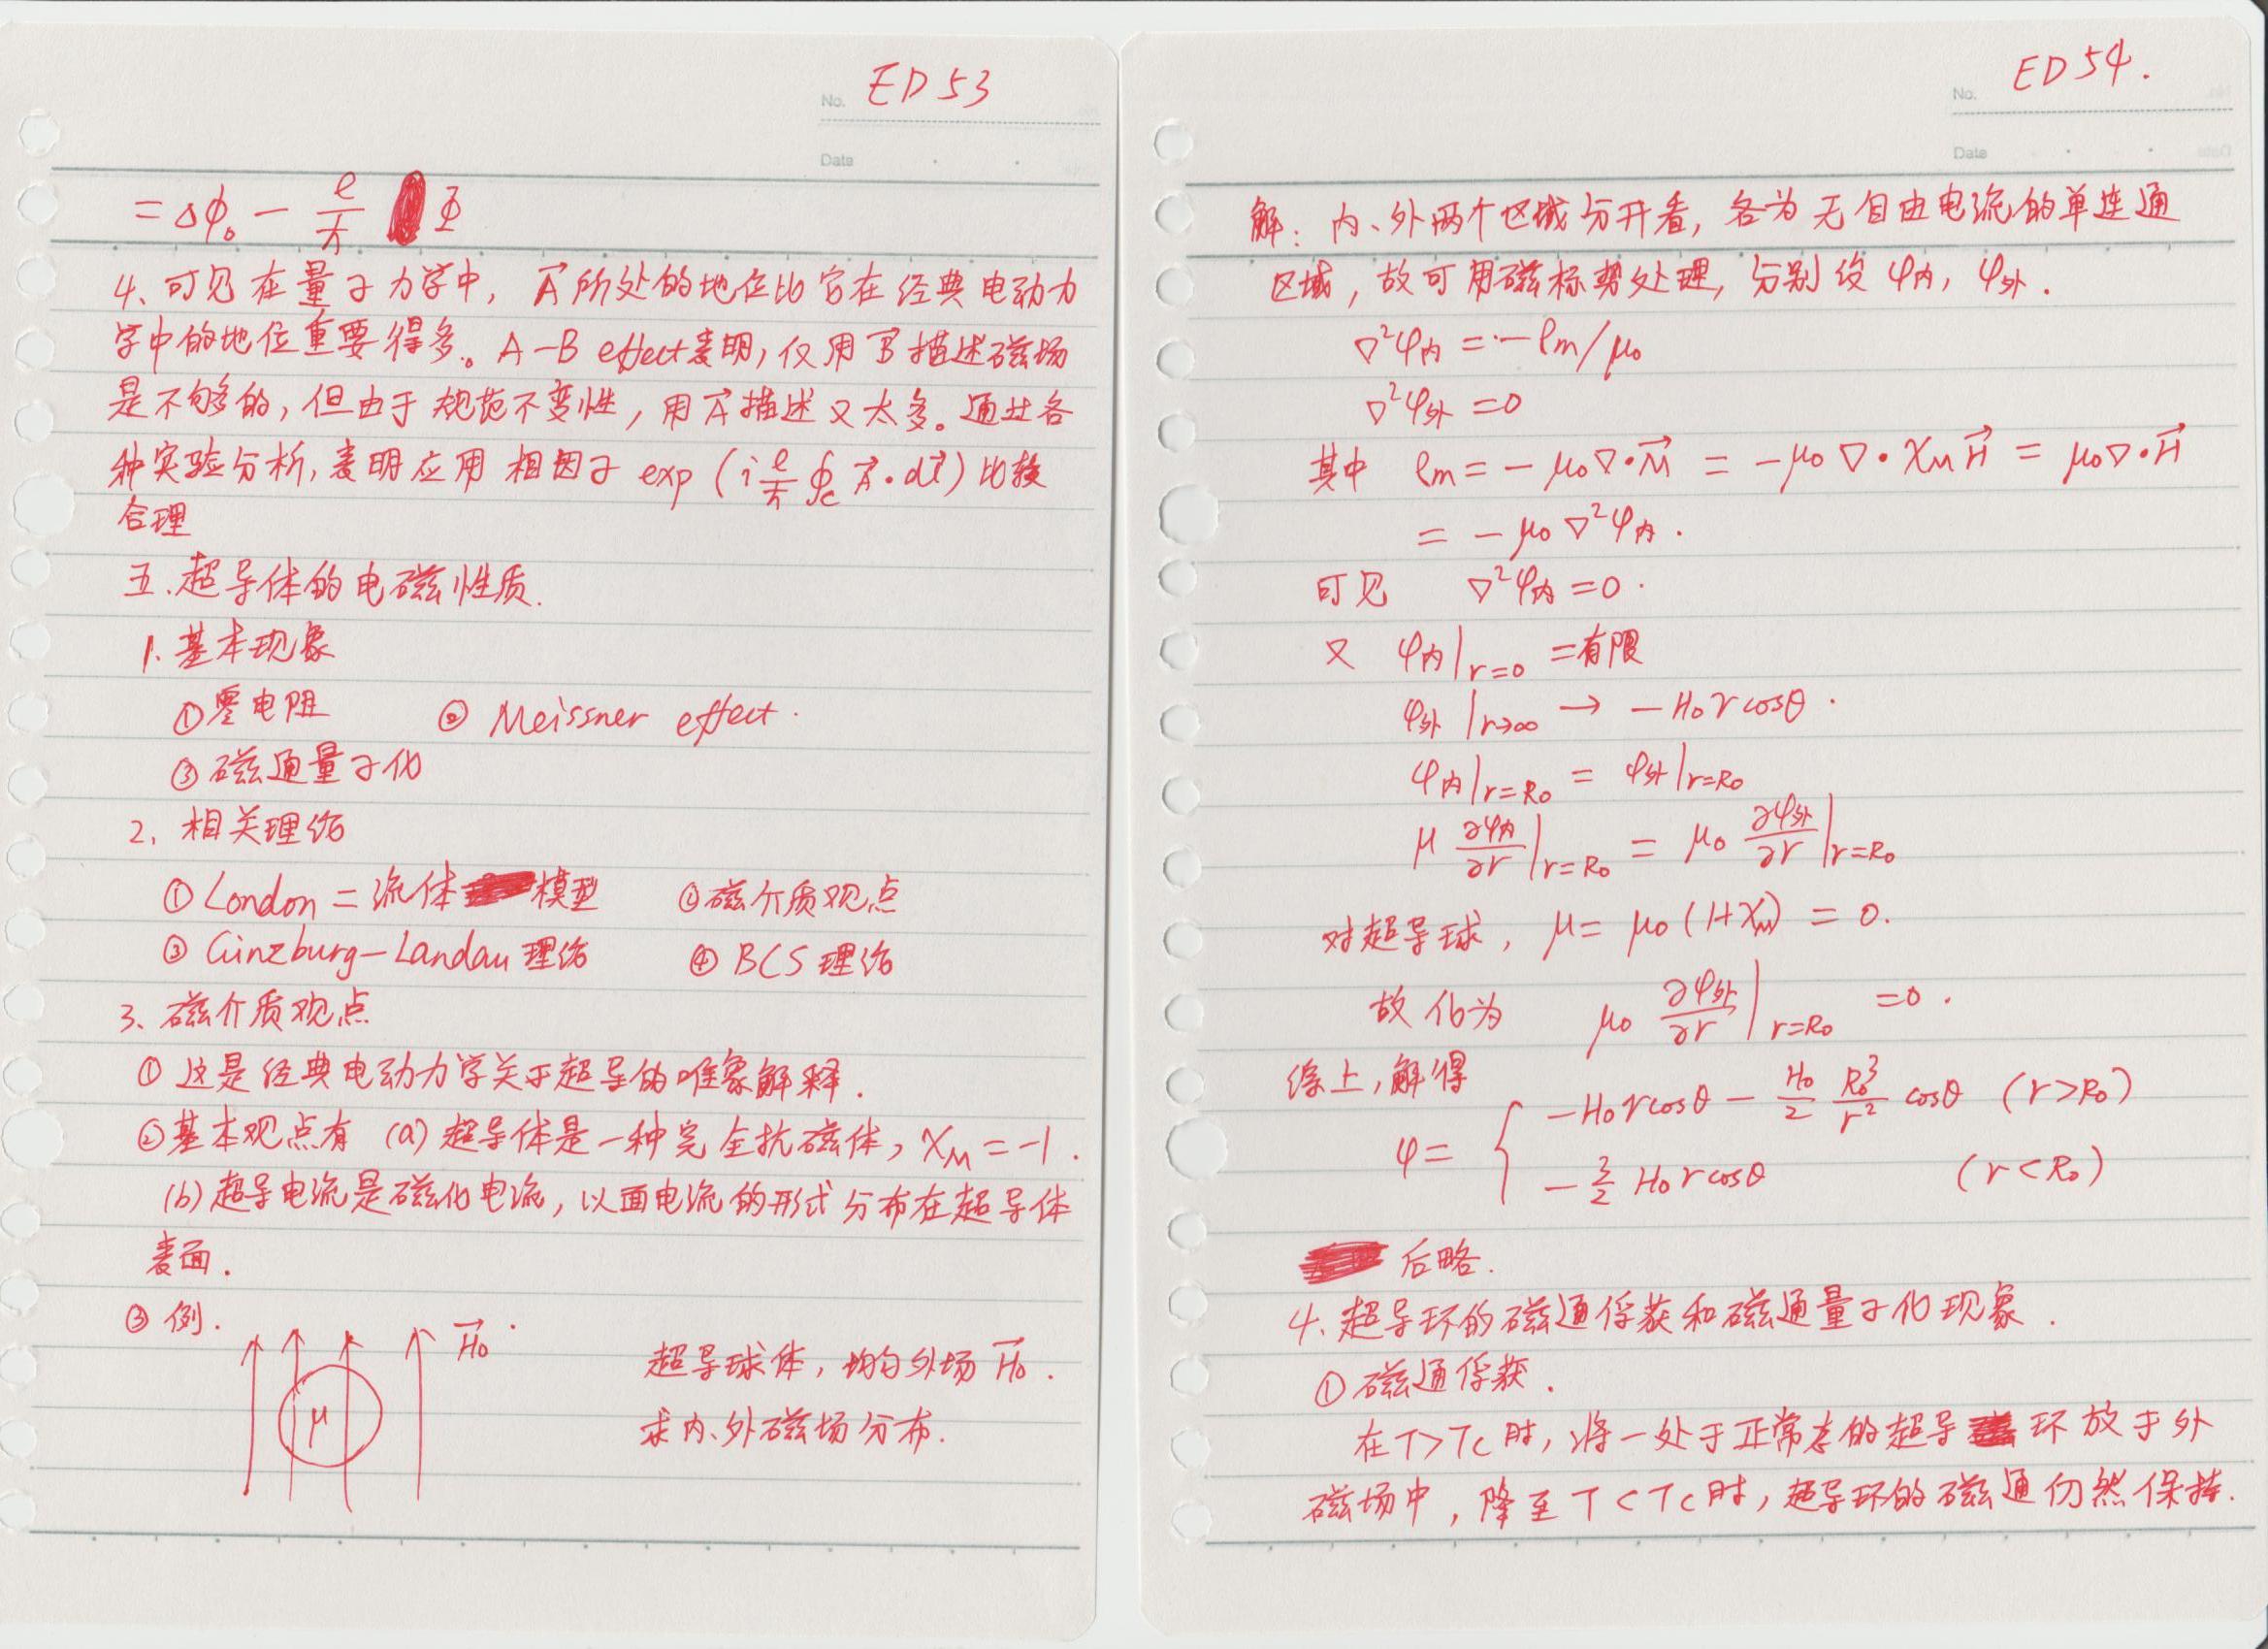 No. ED 53
Date
= Δφ₀ − e/ħ Φ
4、可见在量子力学中，A⃗所处的地位比它在经典电动力
学中的地位重要得多。A-B effect表明，仅用B⃗描述磁场
是不够的，但由于规范不变性，用A⃗描述又太多。通过各
种实验分析，表明应用相因子 exp (i e/ħ ∮c A⃗·dl⃗) 比较
合理
五.超导体的电磁性质.
1.基本现象
①零电阻 ② Meissner effect.
③磁通量子化
2. 相关理论
① London 二流体模型 ②磁介质观点
③ Ginzburg-Landau 理论 ④ BCS 理论
3、磁介质观点
① 这是经典电动力学关于超导的唯象解释.
②基本观点有 (a) 超导体是一种完全抗磁体，χM = −1.
(b) 超导电流是磁化电流，以面电流的形式分布在超导体
表面.
③ 例.
H⃗₀
μ
超导球体，均匀外场 H⃗₀.
求内、外磁场分布.
No. ED 54.
Date
解：内、外两个区域分开看，各为无自由电流的单连通
区域，故可用磁标势处理，分别设 φ内，φ外.
∇²φ内 = −ρm/μ₀
∇²φ外 = 0
其中 ρm = −μ₀∇·M⃗ = −μ₀∇·χM H⃗ = μ₀∇·H⃗
= −μ₀∇²φ内.
可见 ∇²φ内 = 0.
又 φ内|r=0 = 有限
φ外|r→∞ → −H₀r cosθ.
φ内|r=R₀ = φ外|r=R₀
μ ∂φ内/∂r|r=R₀ = μ₀ ∂φ外/∂r|r=R₀
对超导球，μ = μ₀(1+χM) = 0.
故化为 μ₀ ∂φ外/∂r|r=R₀ = 0.
综上，解得
φ = { −H₀r cosθ − H₀/2 R₀³/r² cosθ (r > R₀)
−3/2 H₀r cosθ (r < R₀)
后略.
4、超导环的磁通俘获和磁通量子化现象.
① 磁通俘获.
在T>Tc时，将一处于正常态的超导环放于外
磁场中，降至T<Tc时，超导环的磁通仍然保持.